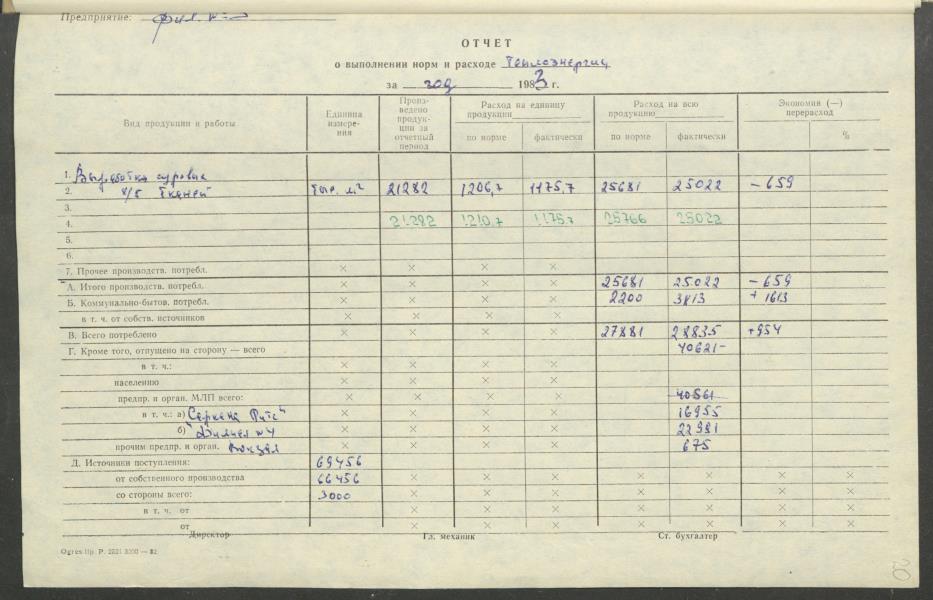 Предприятие: фил. №
ОТЧЕТ
о выполнении норм и расходе теплоэнергии
за год 1983 г.
Вид продукции и работы
Единица измере- ния
Произ- ведено продук- ции за отчетный период
Расход на единицу продукции
по норме фактически
Расход на всю продукцию
по норме фактически
Экономия (—) перерасход
%
1. Выработка суровых
2. х/б тканей тыс. м² 21282 1206,7 1175,7 25681 25022 — 659
3.
4. 21282 1210,7 1175,7 25766 25022
5.
6.
7. Прочее производств. потребл. × × × ×
А. Итого производств. потребл. × × × × 25681 25022 — 659
Б. Коммунально-бытов. потребл. × × × × 2200 3813 + 1613
в т. ч. от собств. источников × × × ×
В. Всего потреблено × × × × 27881 28835 +954
Г. Кроме того, отпущено на сторону — всего 40621-
в т. ч.: × × × ×
населению × × × ×
предпр. и орган. МЛП всего: × × × × 40561
в т. ч.: а) "Саркана 16955
б) № 4 × × × × 22981
прочим предпр. и орган. вокзал × × × × 675
Д. Источники поступления: 69456
от собственного производства 66456 × × × × × × ×
со стороны всего: 3000 × × × × × × ×
в т. ч. от × × × × × × ×
от × × × × × × ×
Директор Гл. механик Ст. бухгалтер
Ogres tip. P. 2221 3000 — 82
20